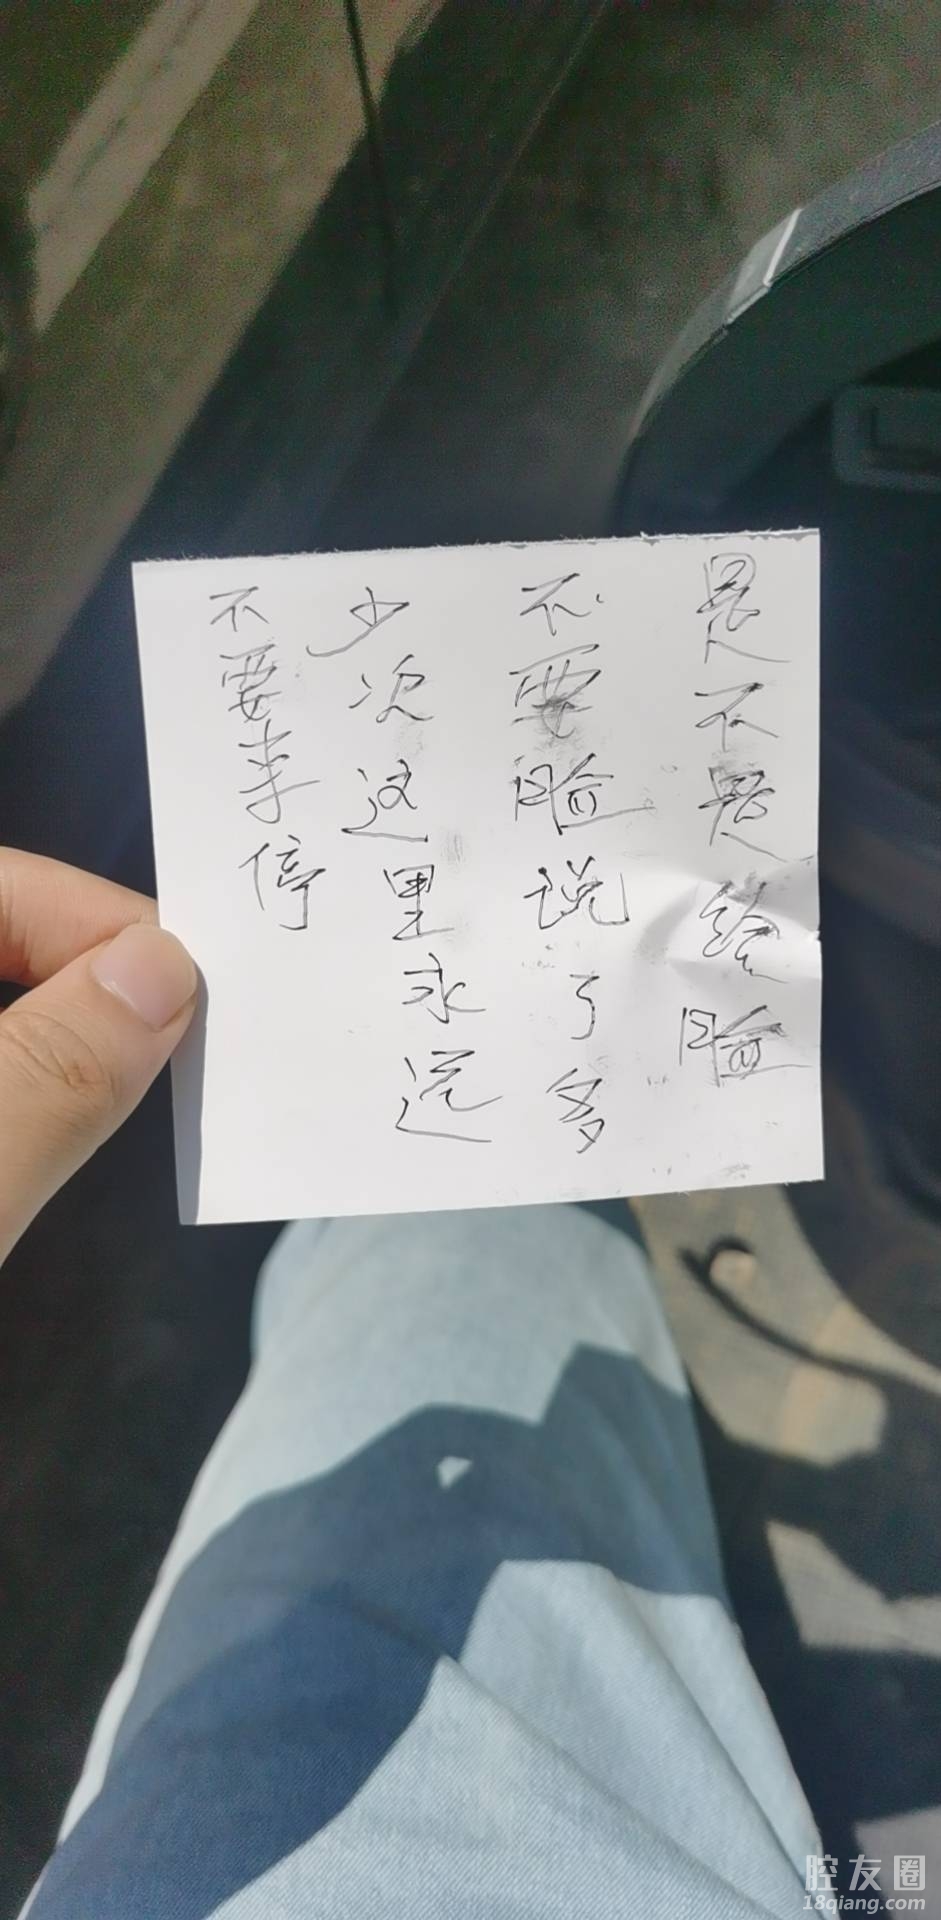 是不是给脸
不要脸说了多
少次这里永远
不要来停
腔友圈
18qiang.com